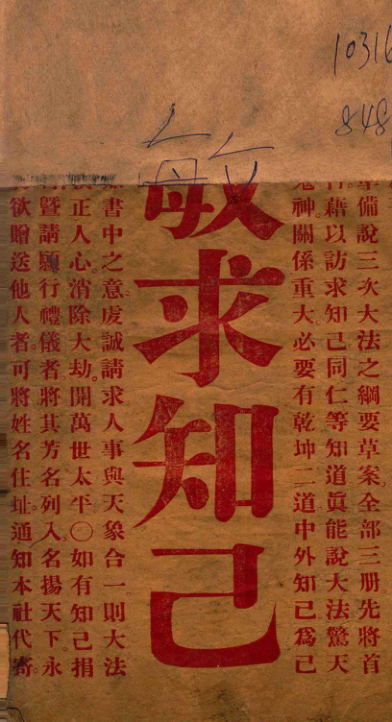 10316
848
備說三次大法之綱要草案。全部三册先將首
藉以訪求知己同仁等知道眞能說大法驚天
鬼神。關係重大。必要有乾坤二道中外知己爲己
敏求知己
如書中之意。虔誠請求人事與天象合一則大法
正人心。消除大劫。開萬世太平〇如有知己捐
曁請願行禮儀者將其芳名列入。名揚天下。永
欲贈送他人者。可將姓名住址。通知本社代寄。